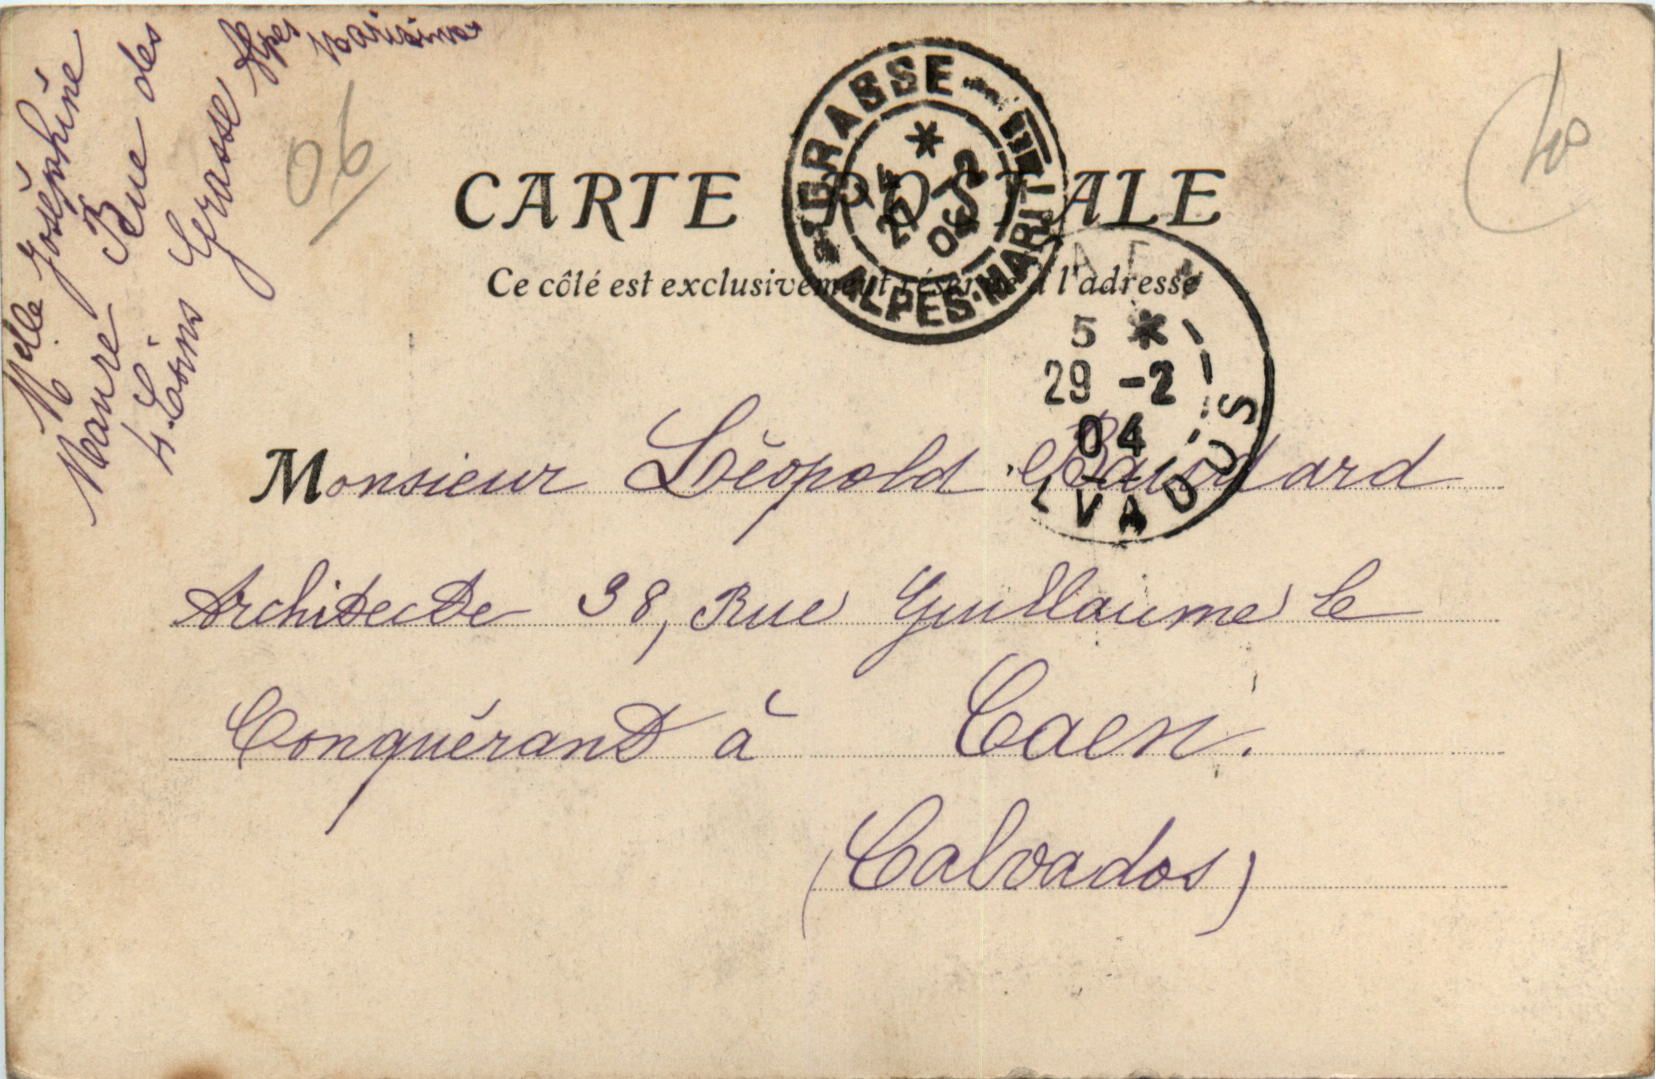 Melle Joséphine
Maure Rue des
4 Coins Grasse Alpes
Maritimes
06
CARTE POSTALE
Ce côté est exclusivement réservé à l'adresse
GRASSE
*
27 -2
04
ALPES-MARITMES
CAEN
5 *
29 -2
04
CALVADOS
Monsieur Léopold
Architecte 38, Rue Guillaume le
Conquérant à Caen.
(Calvados)